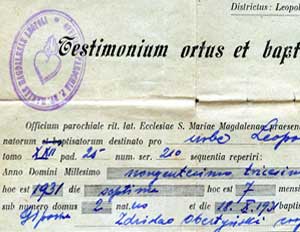 Districtus: Leopo
Testimonium ortus et bapt
Officium parochiale rit. lat. Ecclesiae S. Mariae Magdalenae praesen
natorum et baptisatorum destinato pro urbe Leopo
tomo XXII pad. 25 num. ser. 210 sequentia reperiri:
Anno Domini Millesimo nongentesimo tricesimo
hoc est 1931 die septima hoc est 7 mensi
sub numero domus 2 natus et die 18. X 1931 baptis
Zdzislao Obertyński